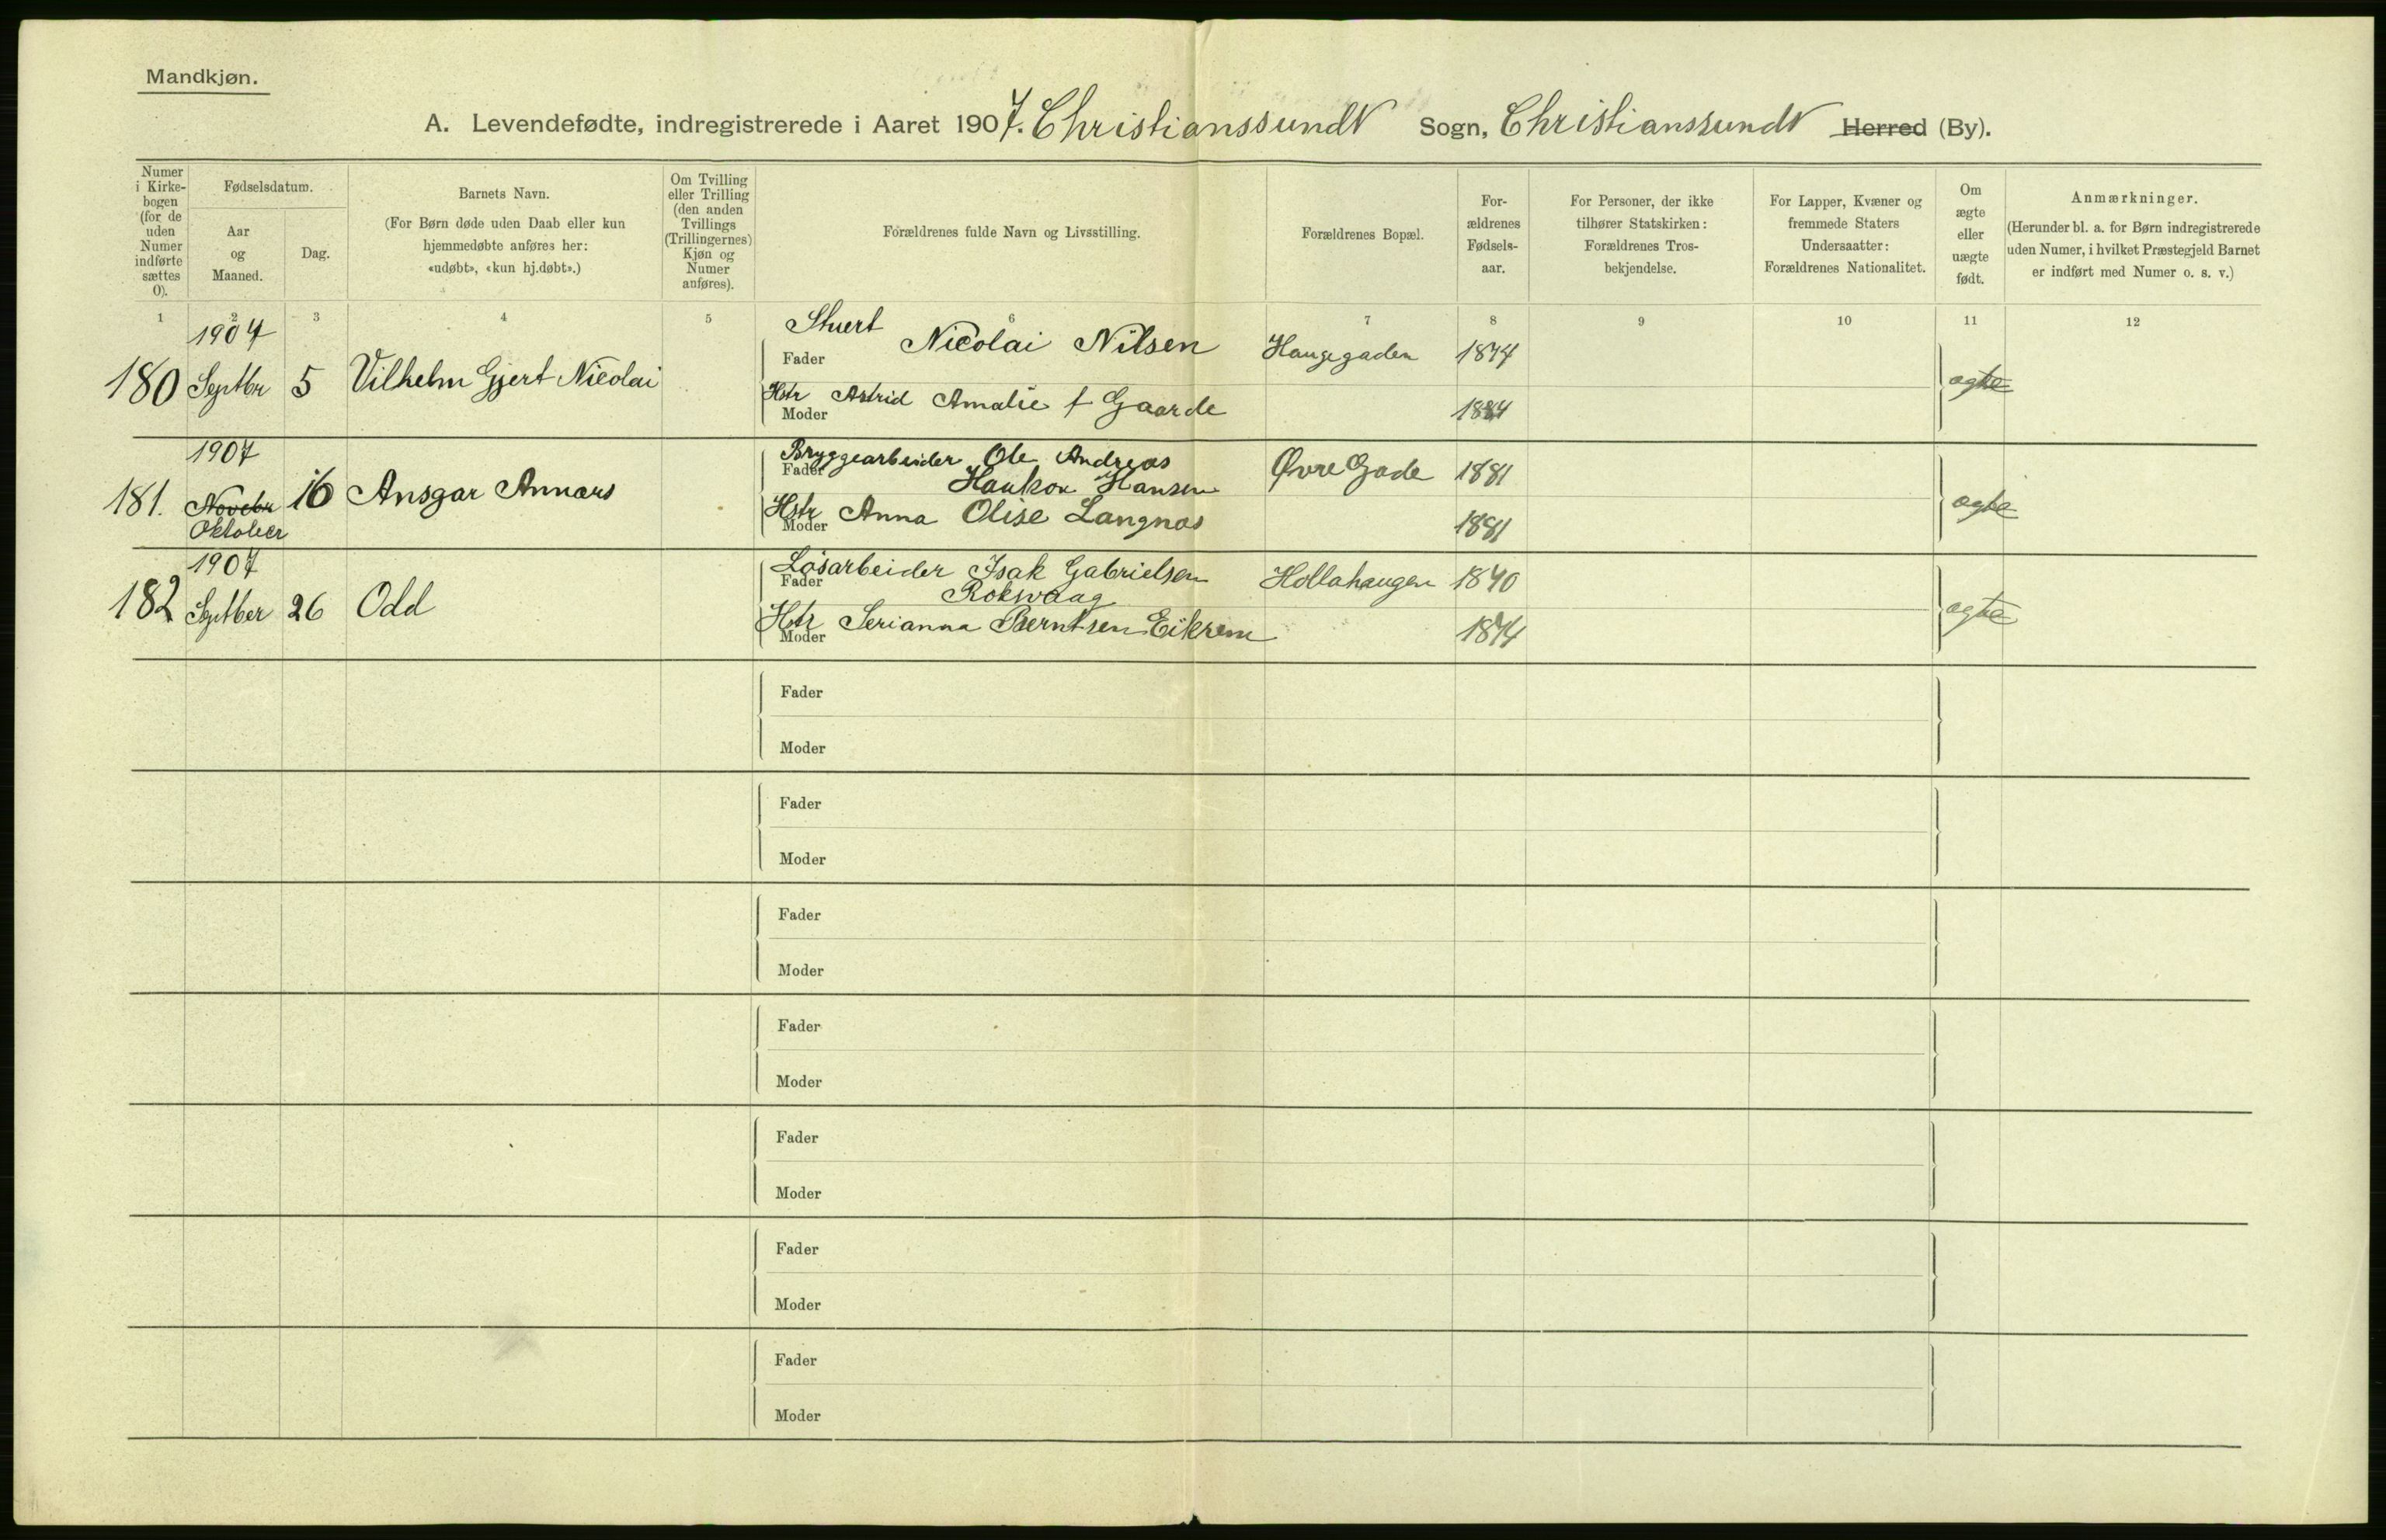 Mandkjøn.
A. Levendefødte, indregistrerede i Aaret 1907. Christianssunds Sogn, Christianssunds Herred (By).
Numer i Kirke-bogen (for de uden Numer indførte sættes 0).
Fødselsdatum.
Aar og Maaned.
Dag.
Barnets Navn.
(For Børn døde uden Daab eller kun hjemmedøbte anføres her: «udøbt», «kun hj.døbt».)
Om Tvilling eller Trilling (den anden Tvillings (Trillingernes) Kjøn og Numer anføres).
Forældrenes fulde Navn og Livsstilling.
Forældrenes Bopæl.
For-ældrenes Fødsels-aar.
For Personer, der ikke tilhører Statskirken: Forældrenes Tros-bekjendelse.
For Lapper, Kvæner og fremmede Staters Undersaatter: Forældrenes Nationalitet.
Om ægte eller uægte født.
Anmærkninger.
(Herunder bl. a. for Børn indregistrerede uden Numer, i hvilket Præstegjeld Barnet er indført med Numer o. s. v.)
1 2 3 4 5 6 7 8 9 10 11 12
1907
180 Septbr 5 Vilhelm Gjert Nicolai
Stuert
Fader Nicolai Nilsen Haugegaden 1874
Hstr Astrid Amalie f Gaarde
Moder 1884
ægte
1907
181. Novebr 16 Ansgar Annars
Oktober
Bryggearbeider Ole Andreas
Fader Haakon Hansen Øvre Gade 1881
Hstr Anna Olise Langnas
Moder 1881
ægte
1907
182 Septber 26 Odd
Løsarbeider Isak Gabrielsen Hollahaugen 1870
Fader Rokwaag
Hstr Serianna Berntsen Eikrem
Moder 1874
ægte
Fader
Moder
Fader
Moder
Fader
Moder
Fader
Moder
Fader
Moder
Fader
Moder
Fader
Moder